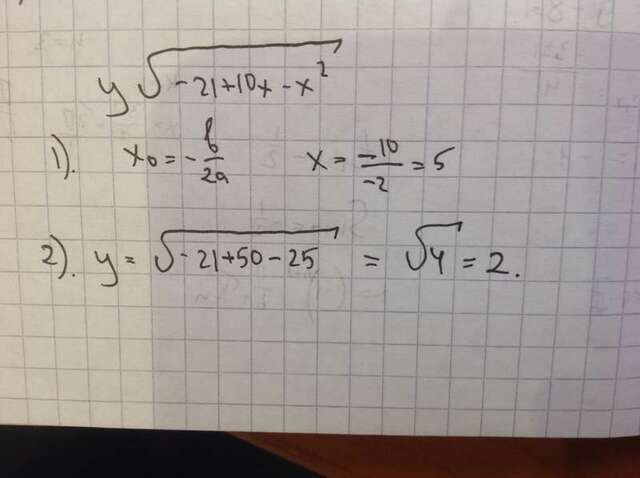 y √-21+10x-x²
1). x₀ = -b/2a x = -10/-2 = 5
2). y = √-21+50-25 = √4 = 2.